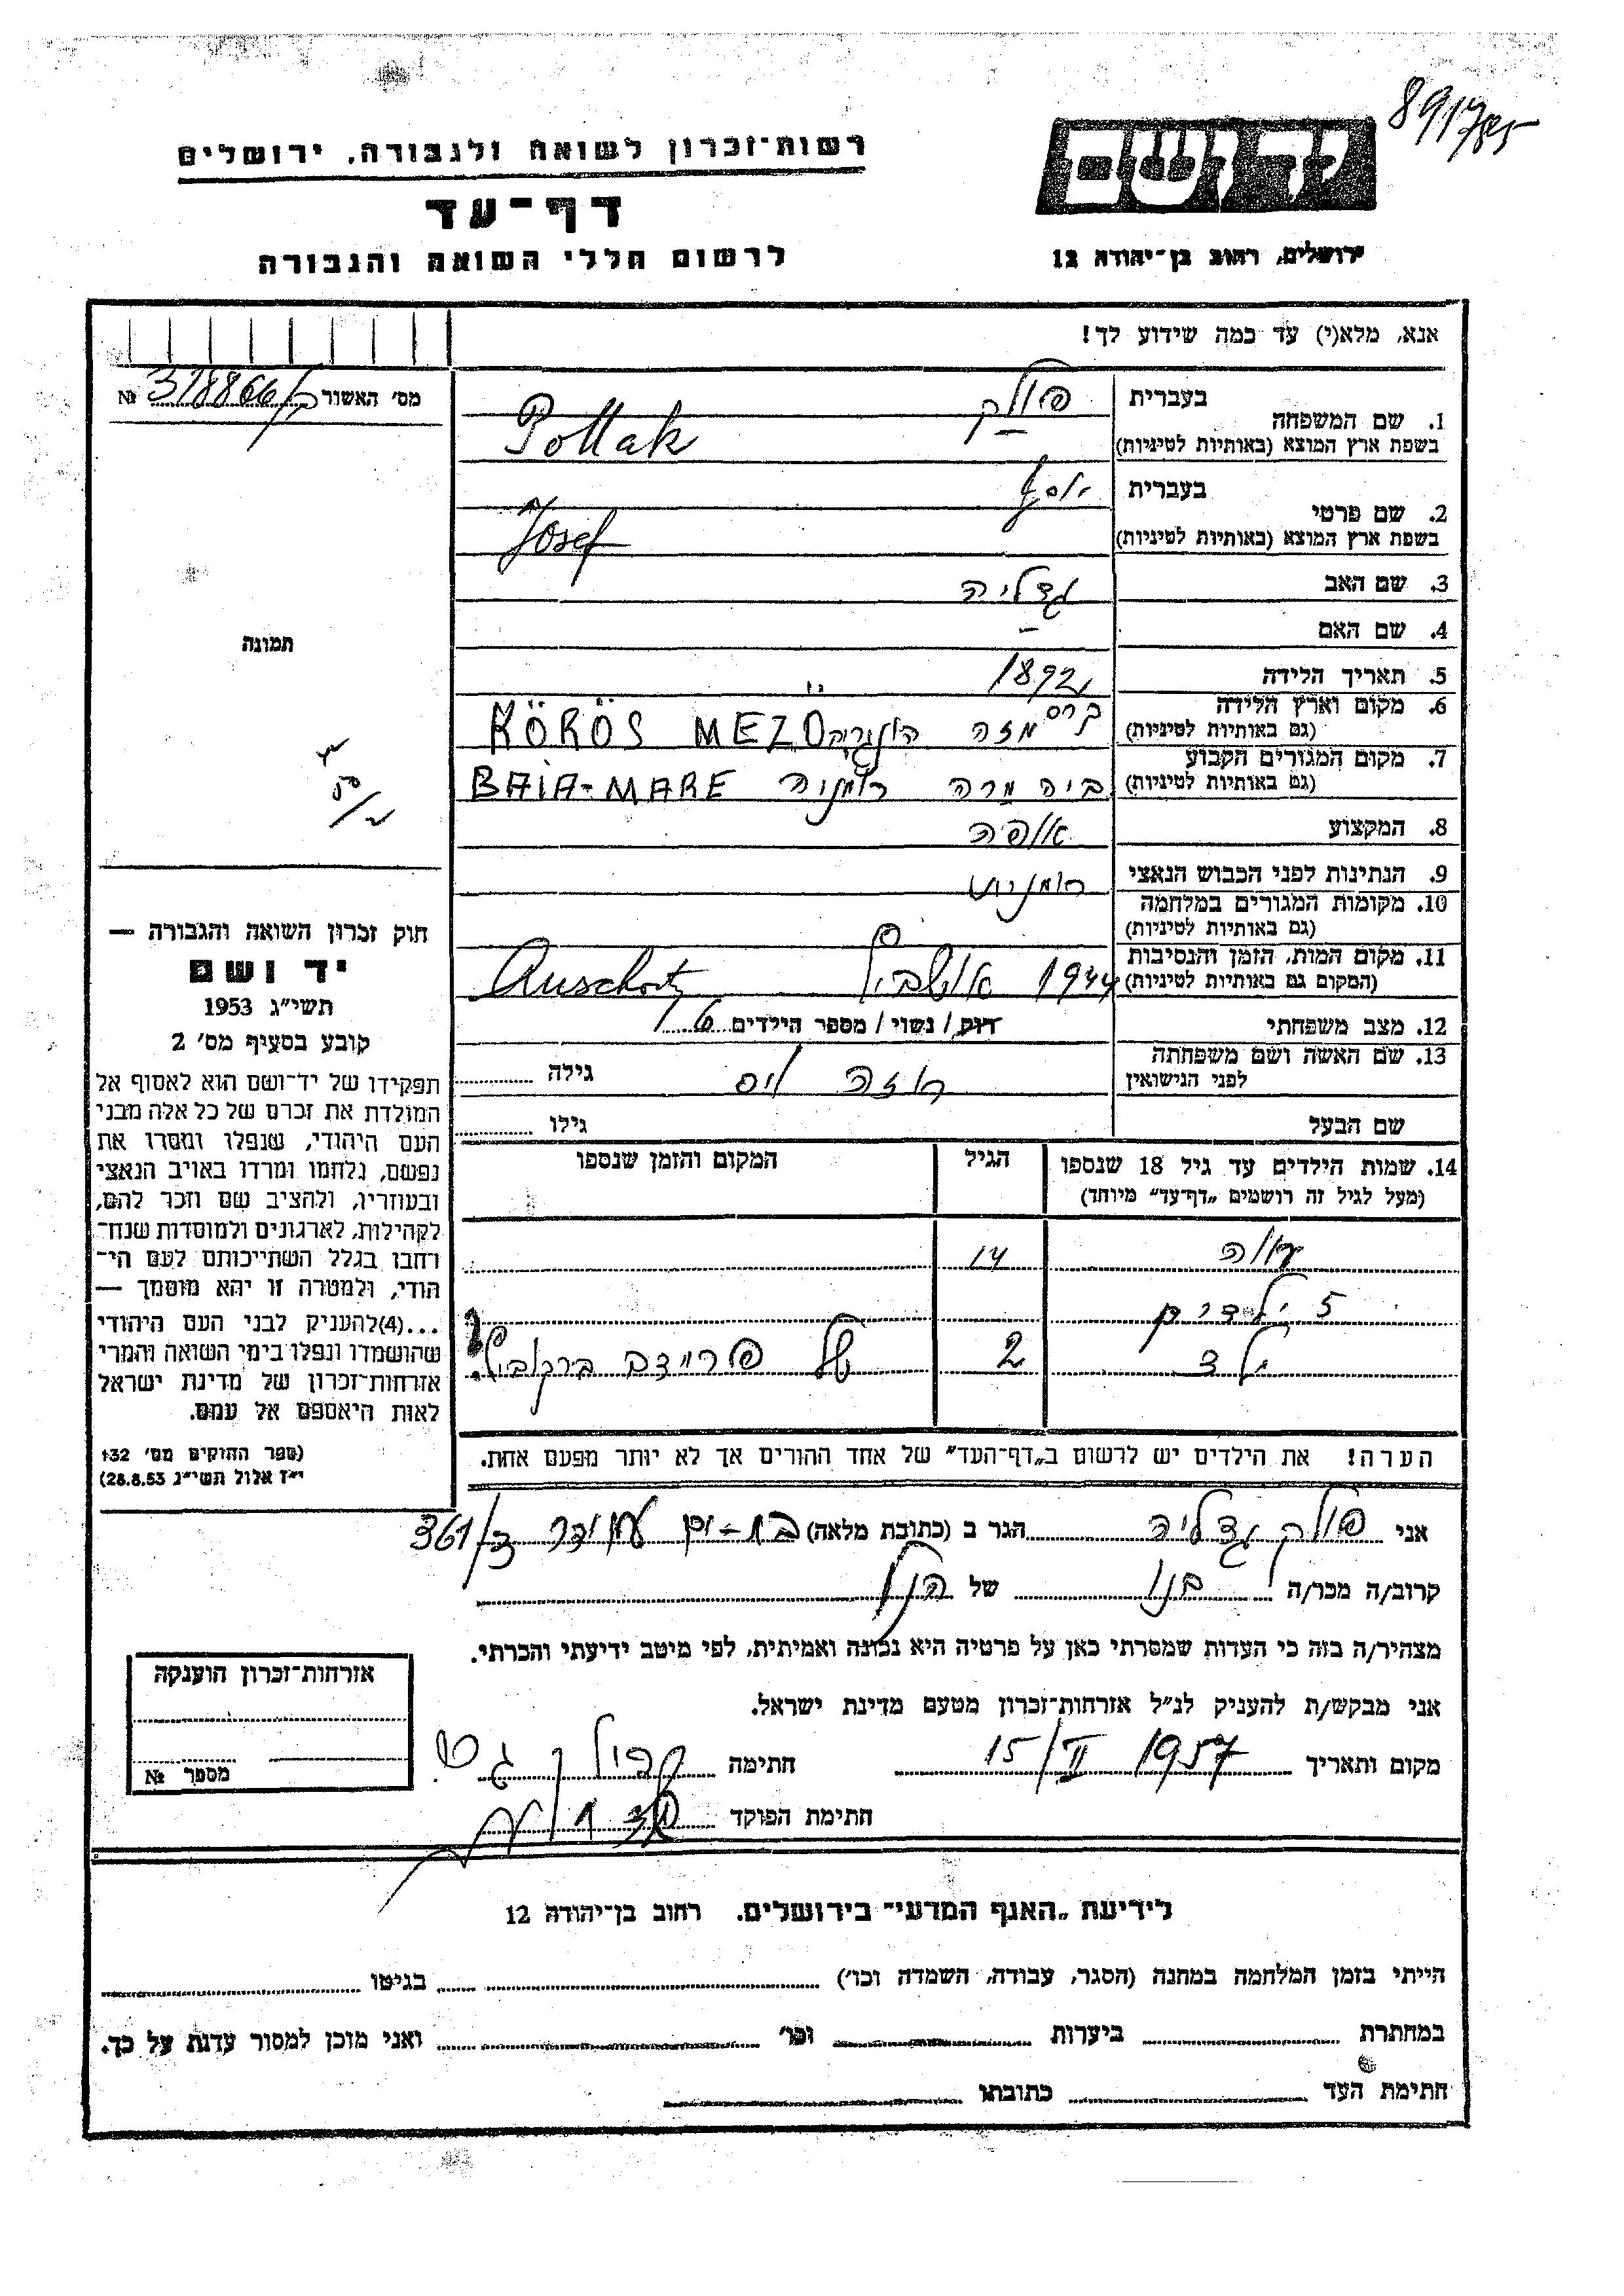 רשות־זכרון לשואה ולגבורה, ירושלים
דף־עד
לרשום חללי השואה והגבורה
ידושם
ירושלים, רחוב בן־יהודה 12
אנא, מלא(י) עד כמה שידוע לך!
מס' האשור № 318866
1. שם המשפחה בעברית פולק
בשפת ארץ המוצא (באותיות לטיניות) Pollak
2. שם פרטי בעברית יוסף
בשפת ארץ המוצא (באותיות לטיניות) Josef
3. שם האב גדליה
4. שם האם –
5. תאריך הלידה 1892
6. מקום וארץ הלידה (גם באותיות לטיניות) קרס מזה הונגריה KÖRÖS MEZÖ
7. מקום המגורים הקבוע (גם באותיות לטיניות) ביה מרה רומניה BAIA-MARE
8. המקצוע אופה
9. הנתינות לפני הכבוש הנאצי רומנית
10. מקומות המגורים במלחמה (גם באותיות לטיניות)
11. מקום המות, הזמן והנסיבות (המקום גם באותיות לטיניות) 1944 אושביץ
12. מצב משפחתי רוק / נשוי / מספר הילדים
13. שם האשה ושם משפחתה לפני הנישואין רוזה גילה
שם הבעל גילו
14. שמות הילדים עד גיל 18 שנספו (מעל לגיל זה רושמים „דף־עד" מיוחד) הגיל המקום והזמן שנספו
14
5 ילדים
ילד 2 של פריידה ברקוביץ
הערה! את הילדים יש לרשום ב„דף־העד" של אחד ההורים אך לא יותר מפעם אחת.
תמונה
חוק זכרון השואה והגבורה —
יד ושם
תשי״ג 1953
קובע בסעיף מס' 2
תפקידו של יד־ושם הוא לאסוף אל
המולדת את זכרם של כל אלה מבני
העם היהודי, שנפלו ומסרו את
נפשם, נלחמו ומרדו באויב הנאצי
ובעוזריו, ולהציב שם וזכר להם,
לקהילות, לארגונים ולמוסדות שנח־
רחבו בגלל השתייכותם לעם הי־
הודי, ולמטרה זו יהא מוסמך —
...(4)להעניק לבני העם היהודי
שהושמדו ונפלו בימי השואה והמרי
אזרחות־זכרון של מדינת ישראל
לאות היאספם אל עמם.
(ספר החוקים מס' 132
י״ז אלול תשי״ג 28.8.53)
אני פולק גדליה הגר ב (כתובת מלאה) בת-ים עמידר 361/
קרוב/ה מכר/ה בנו של הנ״ל
מצהיר/ה בזה כי העדות שמסרתי כאן על פרטיה היא נכונה ואמיתית, לפי מיטב ידיעתי והכרתי.
אני מבקש/ת להעניק לנ״ל אזרחות־זכרון מטעם מדינת ישראל.
מקום ותאריך 15/II 1957 חתימה
חתימת הפוקד
אזרחות־זכרון הוענקה
מספר №
לידיעת „האגף המדעי־ בירושלים. רחוב בן־יהודה 12
הייתי בזמן המלחמה במחנה (הסגר, עבודה, השמדה וכו') בגיטו
במחתרת ביערות וכו' ואני מוכן למסור עדות על כך.
חתימת העד כתובתו